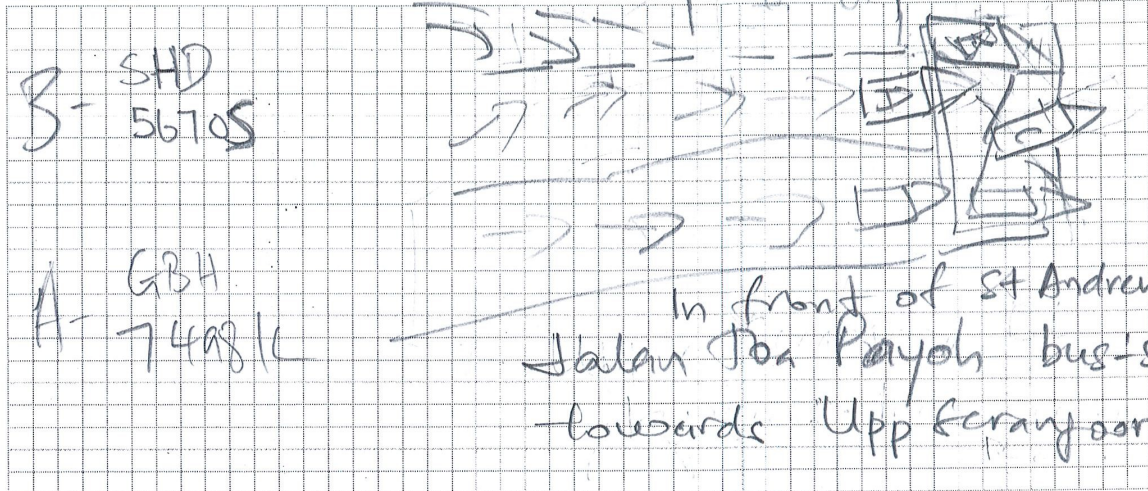 B- SHD
5670S
A- GBH
7498K
In front of St Andrew
Jalan Toa Payoh bus-s
towards Upp Serangoon